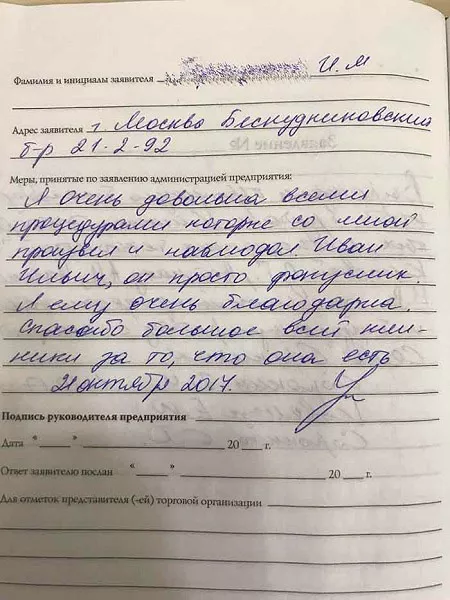 Фамилия и инициалы заявителя И.М
Адрес заявителя г Москва Бескудниковский
б-р 21-2-92
Меры, принятые по заявлению администрацией предприятия:
Я Очень довольна всеми
процедурами которые со мной
произвел и наблюдал. Иван
Ильич, он просто фокусник.
Я ему очень благодарна.
Спасибо большое всей кли-
ники за то, что она есть
21 октября 2017.
Подпись руководителя предприятия
Дата « » 20 г.
Ответ заявителю послан « » 20 г.
Для отметок представителя (-ей) торговой организации